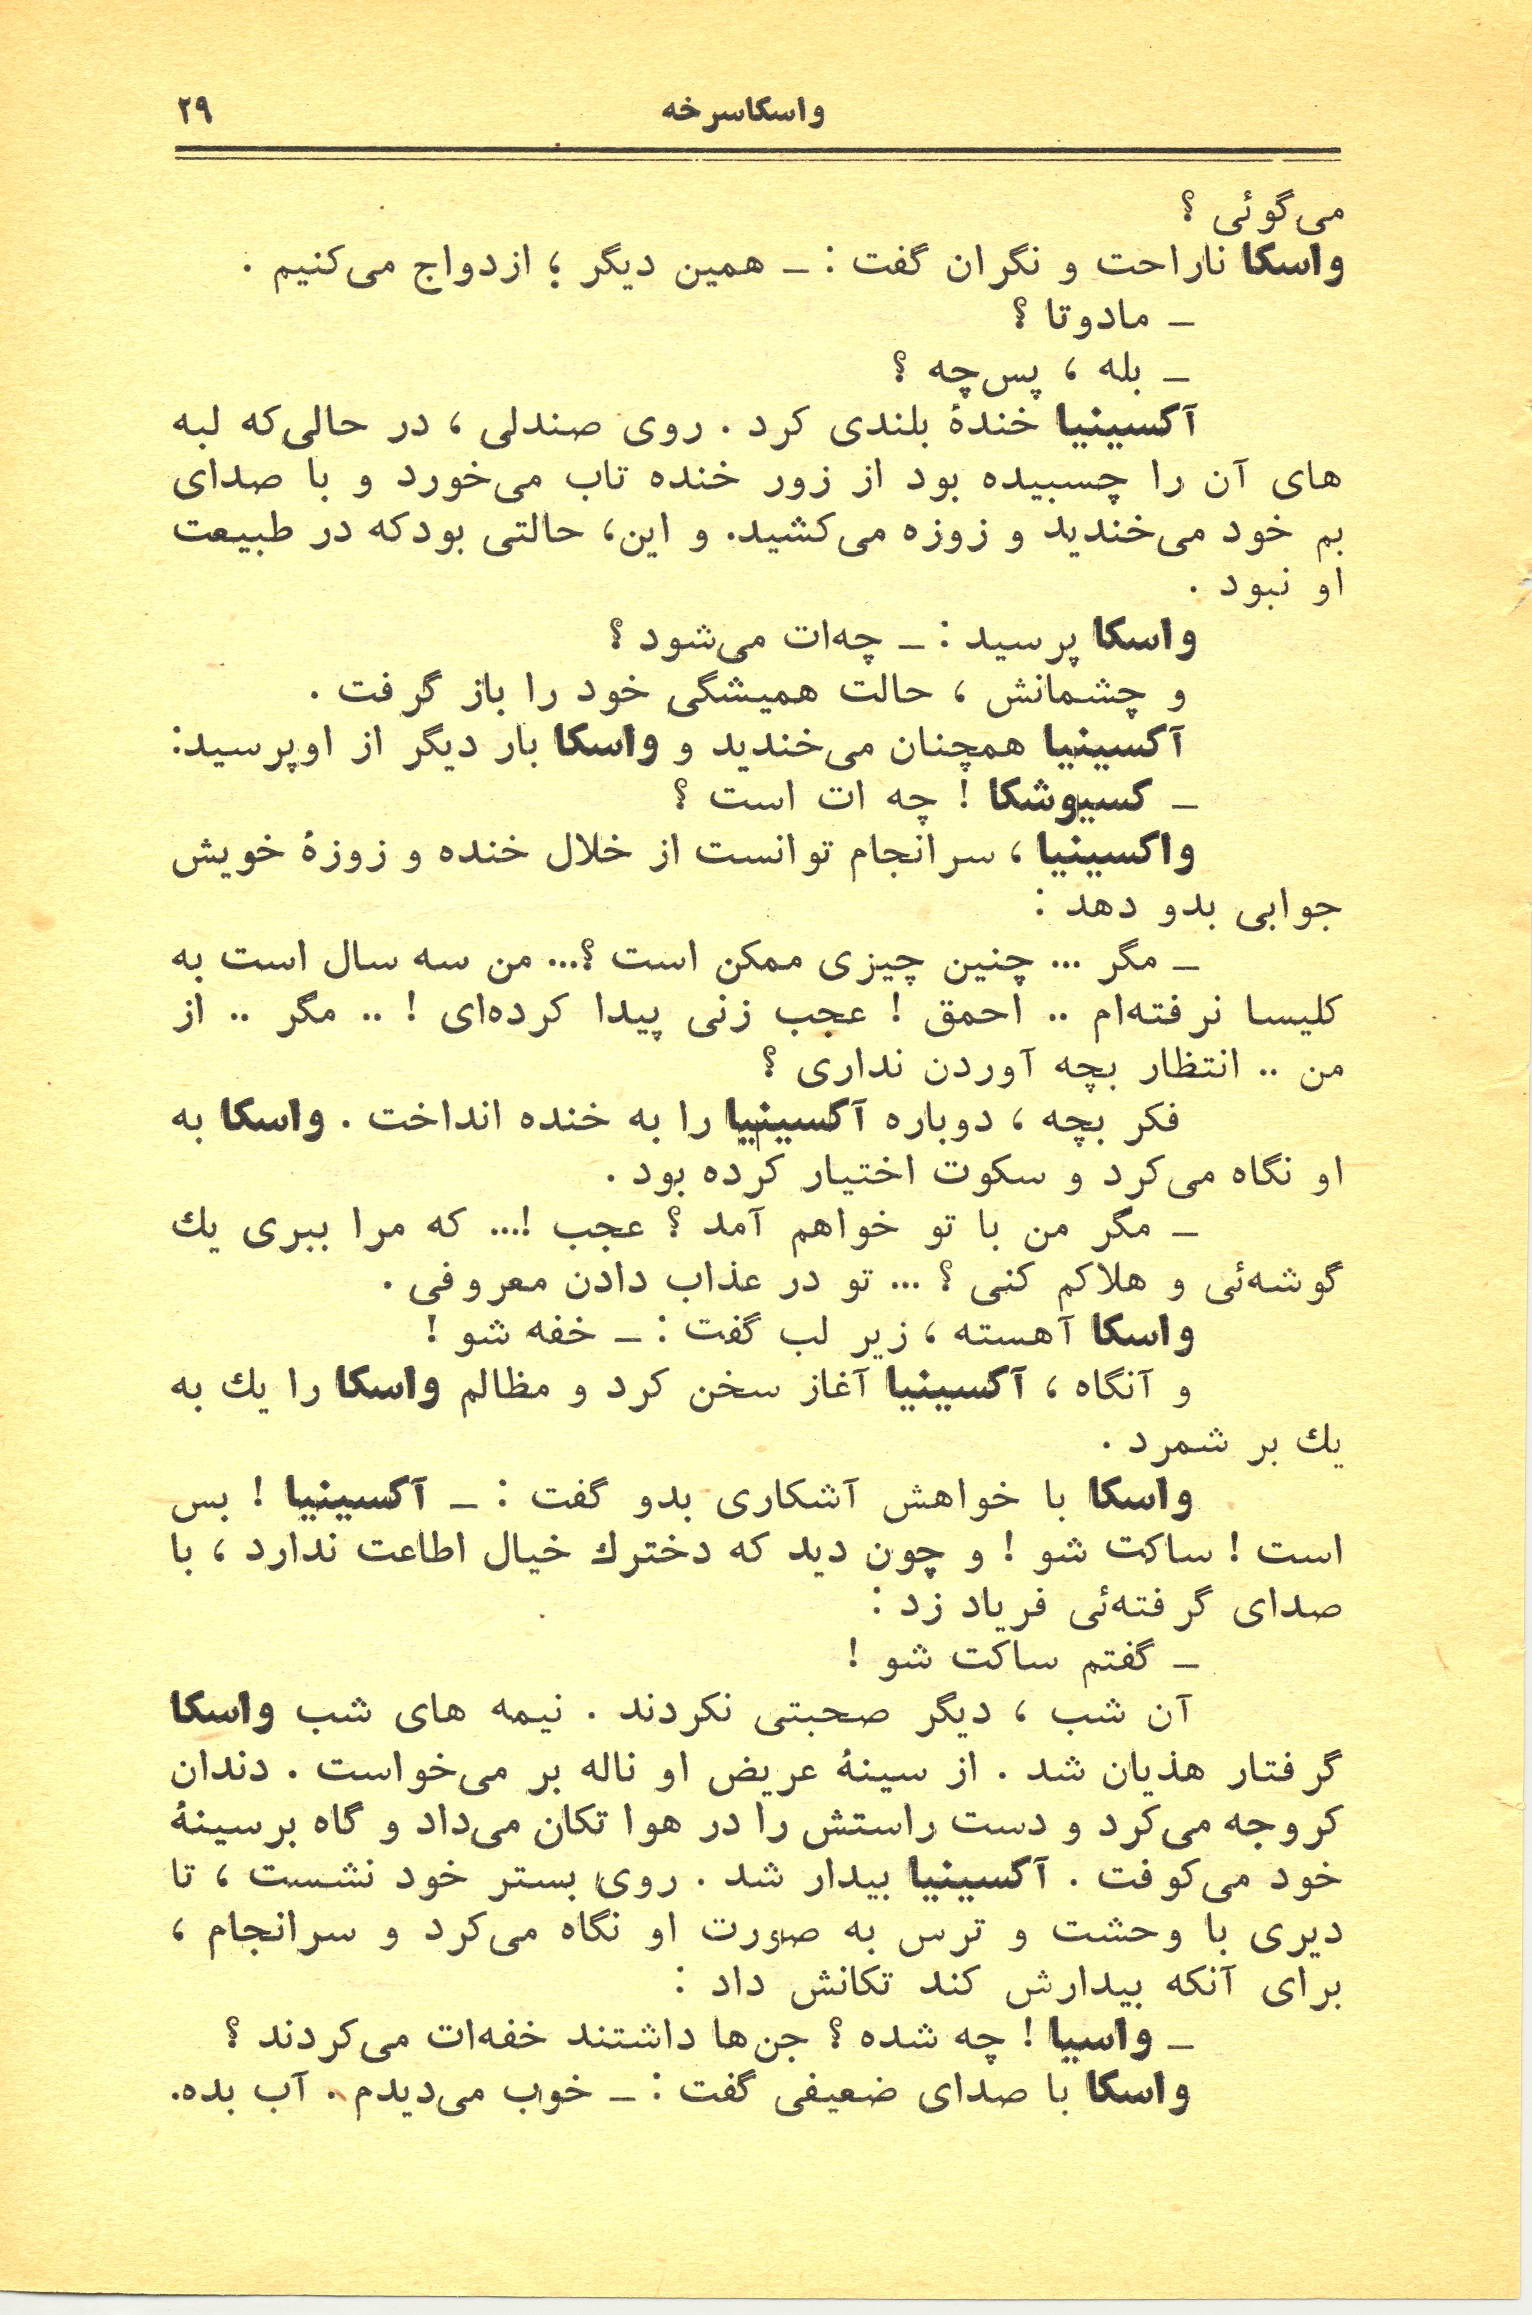 واسکاسرخه ۲۹
می‌گوئی ؟
واسکا ناراحت و نگران گفت : ـ همین دیگر ؛ ازدواج می‌کنیم .
ـ مادوتا ؟
ـ بله ، پس‌چه ؟
آکسینیا خندهٔ بلندی کرد . روی صندلی ، در حالی‌که لبه
های آن را چسبیده بود از زور خنده تاب می‌خورد و با صدای
بم خود می‌خندید و زوزه می‌کشید. و این، حالتی بودکه در طبیعت
او نبود .
واسکا پرسید : ـ چه‌ات می‌شود ؟
و چشمانش ، حالت همیشگی خود را باز گرفت .
آکسینیا همچنان می‌خندید و واسکا بار دیگر از اوپرسید:
ـ کسیوشکا ! چه ات است ؟
واکسینیا ، سرانجام توانست از خلال خنده و زوزهٔ خویش
جوابی بدو دهد :
ـ مگر ... چنین چیزی ممکن است ؟... من سه سال است به
کلیسا نرفته‌ام .. احمق ! عجب زنی پیدا کرده‌ای ! .. مگر .. از
من .. انتظار بچه آوردن نداری ؟
فکر بچه ، دوباره آکسینیا را به خنده انداخت . واسکا به
او نگاه می‌کرد و سکوت اختیار کرده بود .
ـ مگر من با تو خواهم آمد ؟ عجب !... که مرا ببری یك
گوشه‌ئی و هلاکم کنی ؟ ... تو در عذاب دادن معروفی .
واسکا آهسته ، زیر لب گفت : ـ خفه شو !
و آنگاه ، آکسینیا آغاز سخن کرد و مظالم واسکا را یك به
یك بر شمرد .
واسکا با خواهش آشکاری بدو گفت : ـ آکسینیا ! بس
است ! ساکت شو ! و چون دید که دخترك خیال اطاعت ندارد ، با
صدای گرفته‌ئی فریاد زد :
ـ گفتم ساکت شو !
آن شب ، دیگر صحبتی نکردند . نیمه های شب واسکا
گرفتار هذیان شد . از سینهٔ عریض او ناله بر می‌خواست . دندان
کروجه می‌کرد و دست راستش را در هوا تکان می‌داد و گاه برسینهٔ
خود می‌کوفت . آکسینیا بیدار شد . روی بستر خود نشست ، تا
دیری با وحشت و ترس به صورت او نگاه می‌کرد و سرانجام ،
برای آنکه بیدارش کند تکانش داد :
ـ واسیا ! چه شده ؟ جن‌ها داشتند خفه‌ات می‌کردند ؟
واسکا با صدای ضعیفی گفت : ـ خوب می‌دیدم . آب بده.